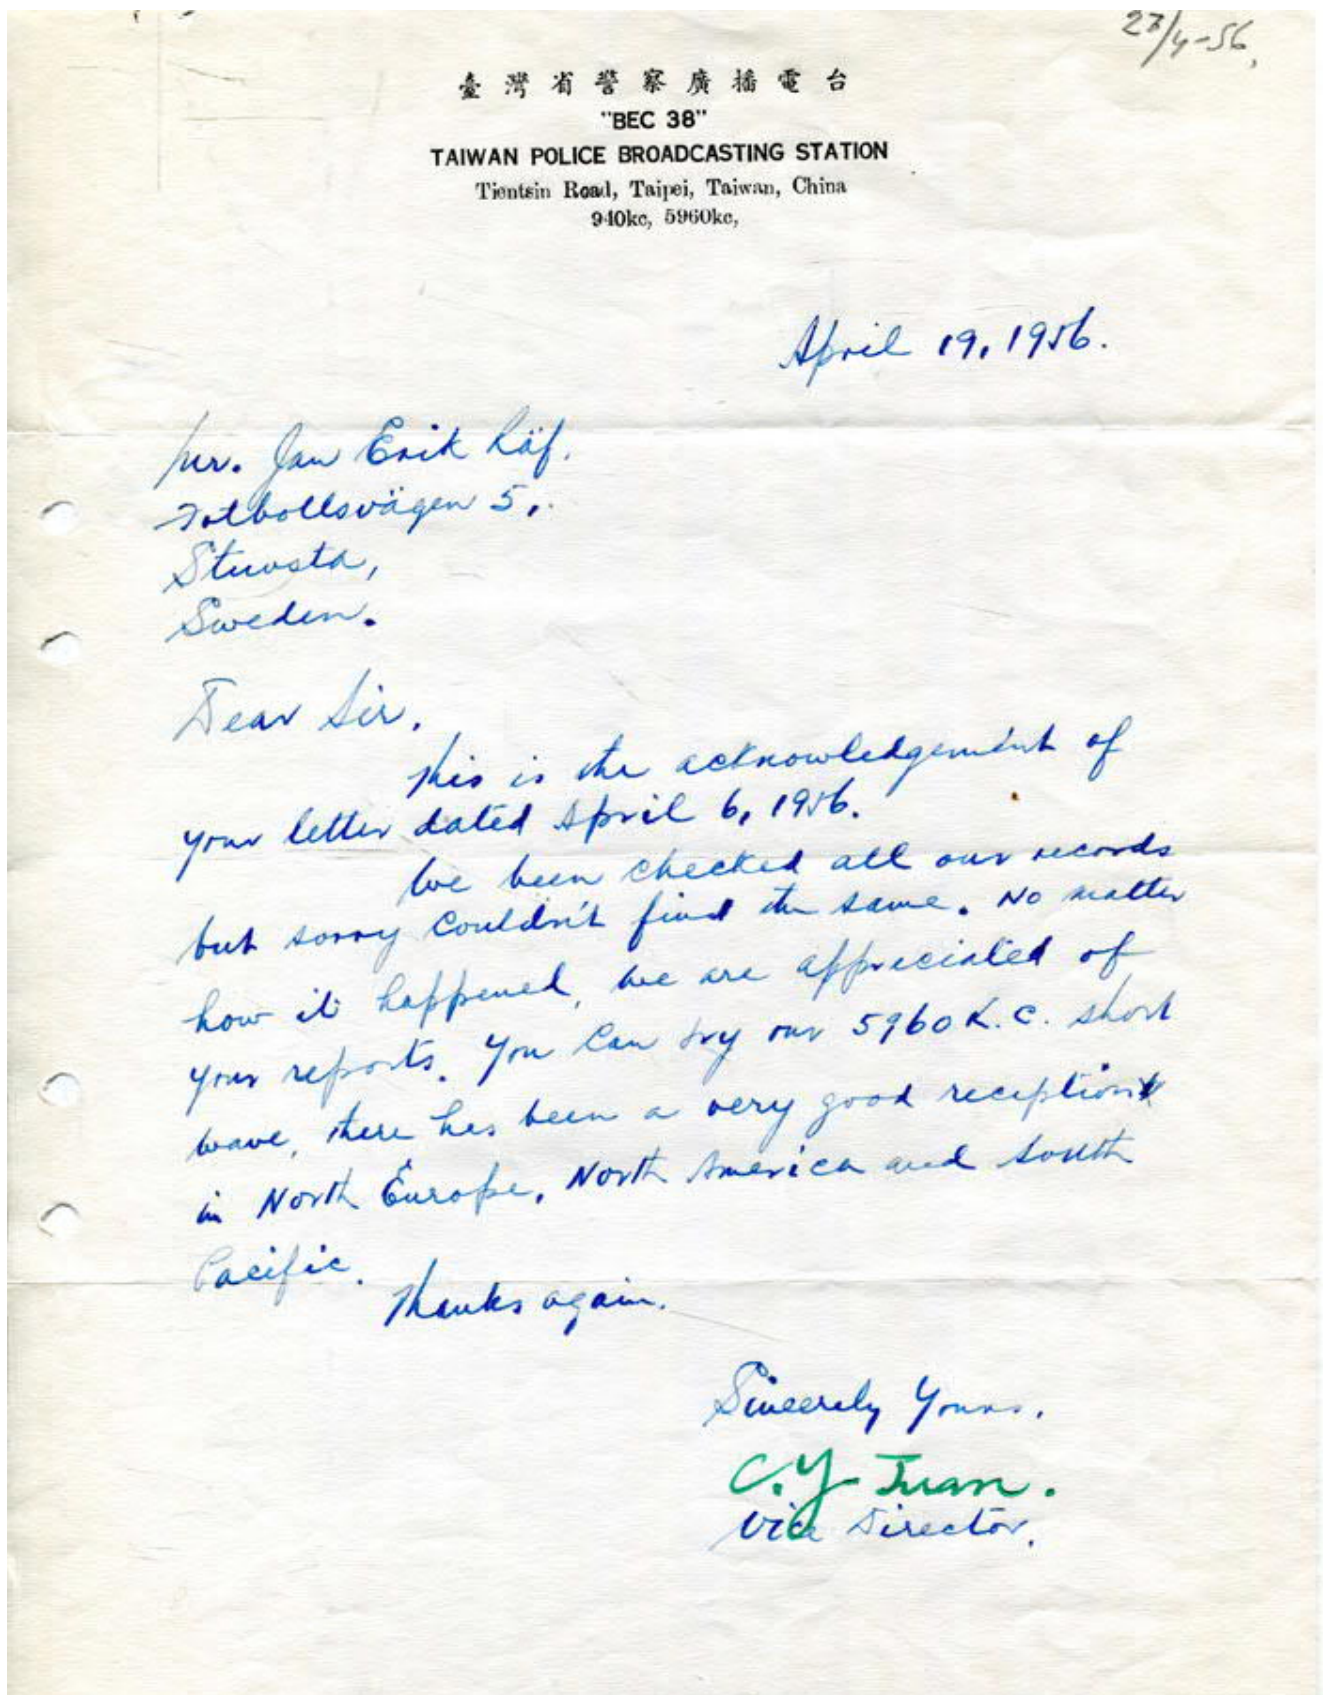 27/4-56,
臺灣省警察廣播電台
"BEC 38"
TAIWAN POLICE BROADCASTING STATION
Tientsin Road, Taipei, Taiwan, China
940kc, 5960kc,
April 19, 1956.
Mr. Jan Erik Räf.
Fotbollsvägen 5,
Stuvsta,
Sweden.
Dear Sir.
This is the acknowledgement of
your letter dated April 6, 1956.
We been checked all our records
but sorry couldn't find the same. No matter
how it happened, we are appreciated of
your reports. You can try our 5960 K.C. short
wave, there has been a very good reception
in North Europe, North America and South
Pacific.
Thanks again.
Sincerely Yours.
C.Y. Juan.
Vice Director.